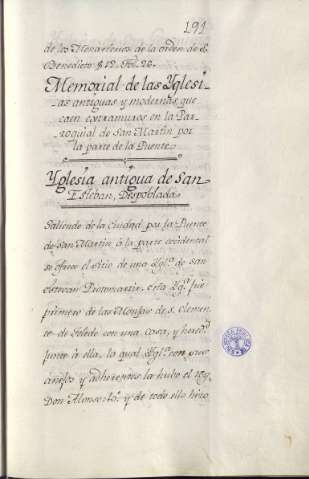 191
de los Monasterios de la orden de S.
Benedicto § 12. Fol. 26.
Memorial de las Yglesi-
-as antiguas y modernas que
caen extramuros en la Par-
roquial de San Martin por
la parte de la Puente.
Yglesia antigua de San
Esteban, Despoblada.
Saliendo de la Ciudad por la Puente
de San Martin á la parte occidental
se ofrece el sitio de una Ygl.ª de San
Estevan Protomartir, esta Yg.ª fue
primero de las Monjas de S. Clemen-
te de Toledo con una casa, y hered.
junto á ella, la qual Ygl.ª con sus
anejos y adherentes la hubo el rey
Don Alonso y de todo ello hizo